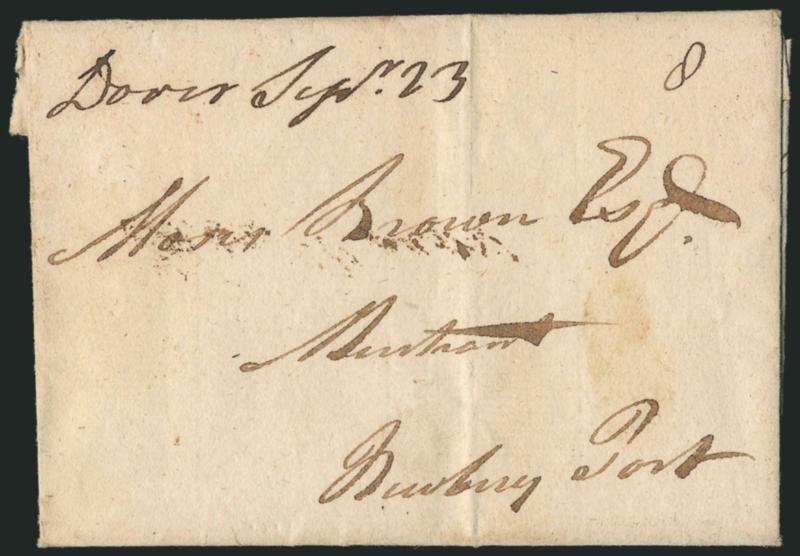 Dover Sepr. 23 8
Moses Brown Esqr.
Merchant
Newbury Port